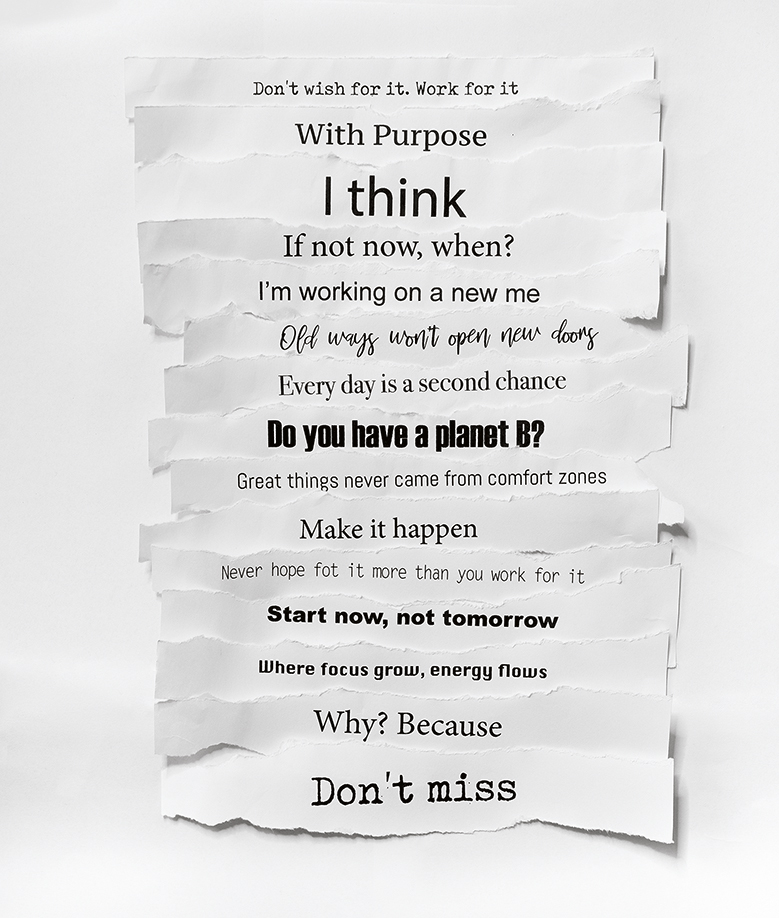 Don't wish for it. Work for it
With Purpose
I think
If not now, when?
I'm working on a new me
Old ways won't open new doors
Every day is a second chance
Do you have a planet B?
Great things never came from comfort zones
Make it happen
Never hope fot it more than you work for it
Start now, not tomorrow
Where focus grow, energy flows
Why? Because
Don't miss